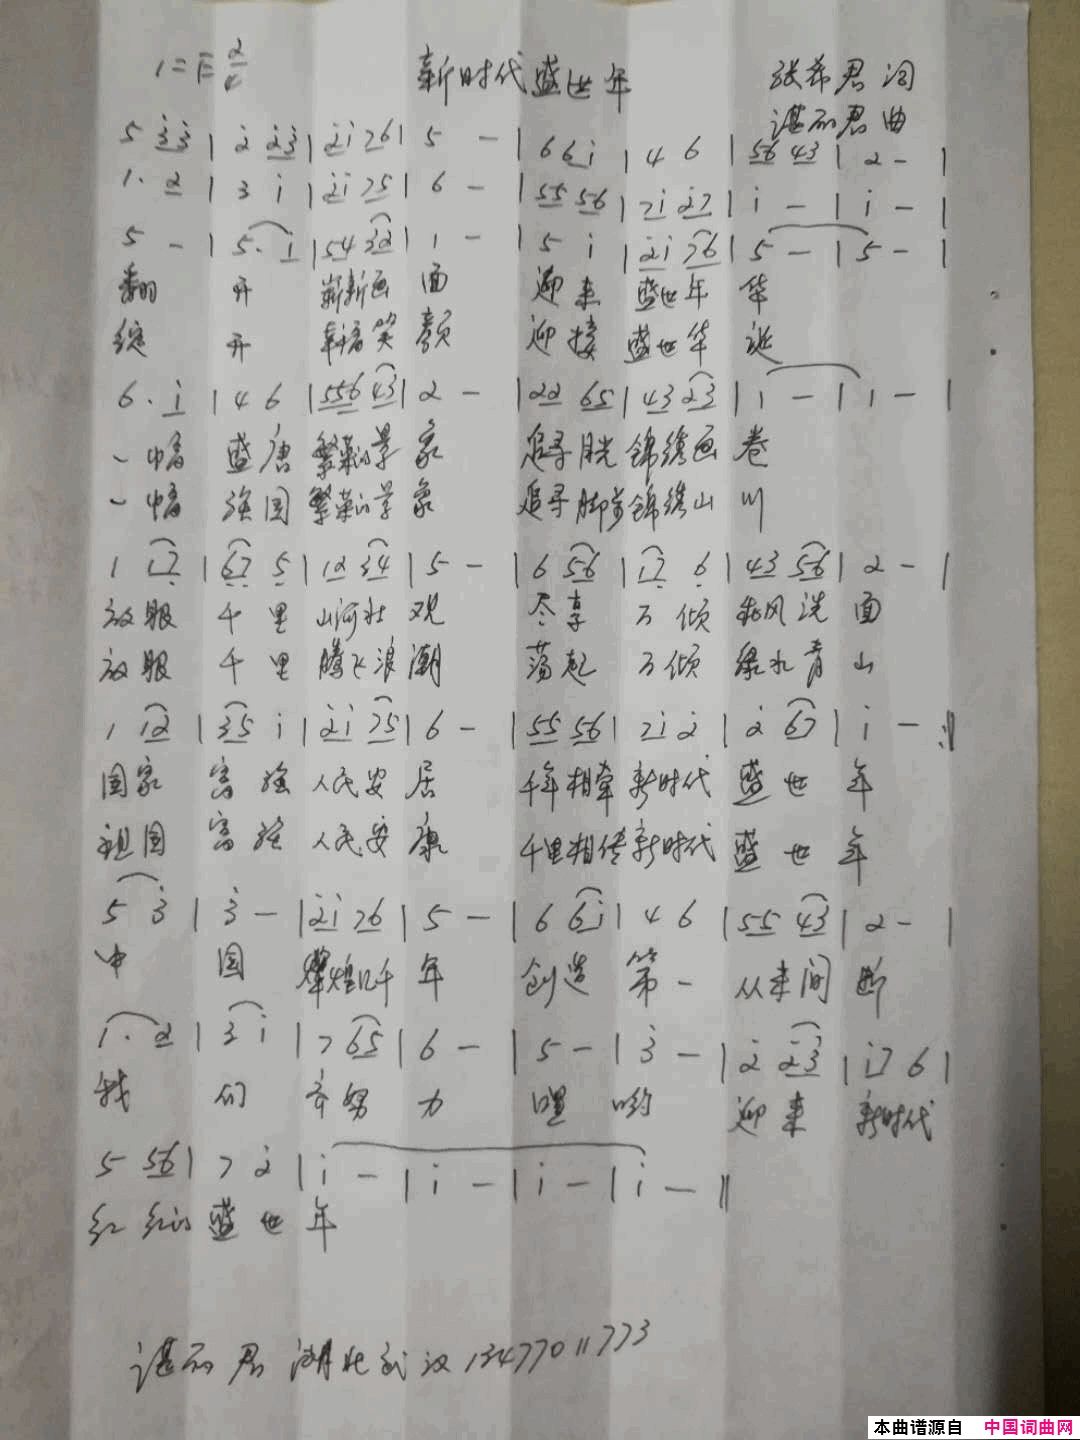 1=E 2/4 新时代盛世年 张希君 词
谌丽君 曲
5 3̇3̇ | 2̇ 2̇3̇ | 2̇1̇ 76 | 5 - | 6 61̇ | 4 6 | 56 43 | 2 - |
1. 2 | 3 1̇ | 2̇1̇ 75 | 6 - | 55 56 | 71̇ 2̇7 | 1̇ - | 1̇ - |
5 - | 5. 1̇ | 54 32 | 1 - | 5 1̇ | 2̇1̇ 76 | 5 - | 5 - |
翻 开 崭新画 面 迎来 盛世年 华
绽 开 幸福笑 颜 迎接 盛世华 诞
6. 1̇ | 4 6 | 556 43 | 2 - | 22 65 | 43 23 | 1 - | 1 - |
一幅 盛唐 繁荣的景 象 追寻目光 锦绣画 卷
一幅 强国 繁荣的景 象 追寻脚步 锦绣山 川
1 17̣ | 6̣7̣ 5̣ | 12 34 | 5 - | 6 56 | 17̣ 6̣ | 43 56 | 2 - |
放眼 千里 山河壮 观 尽享 万倾 秋风洗 面
放眼 千里 腾飞浪 潮 荡起 万倾 绿水青 山
1 12 | 35 1̇ | 2̇1̇ 75 | 6 - | 55 56 | 71̇ 2̇ | 2̇ 67 | 1̇ - :||
国家 富强 人民安 居 千年相牵 新时代 盛世 年
祖国 富强 人民安 康 千里相传 新时代 盛世 年
5 3̇ | 3̇ - | 2̇1̇ 76 | 5 - | 6 61̇ | 4 6 | 55 43 | 2 - |
中 国 辉煌几千 年 创造 第一 从未间 断
1. 2 | 3 1̇ | 7 65 | 6 - | 5 - | 3̇ - | 2̇ 2̇3̇ | 1̇7 6 |
我 们 齐努 力 哩 哟 迎来 新时代
5 56 | 7 2̇ | 1̇ - | 1̇ - | 1̇ - | 1̇ - ||
红 红的 盛世 年
谌丽君 湖北武汉 13477011773
本曲谱源自 中国词曲网